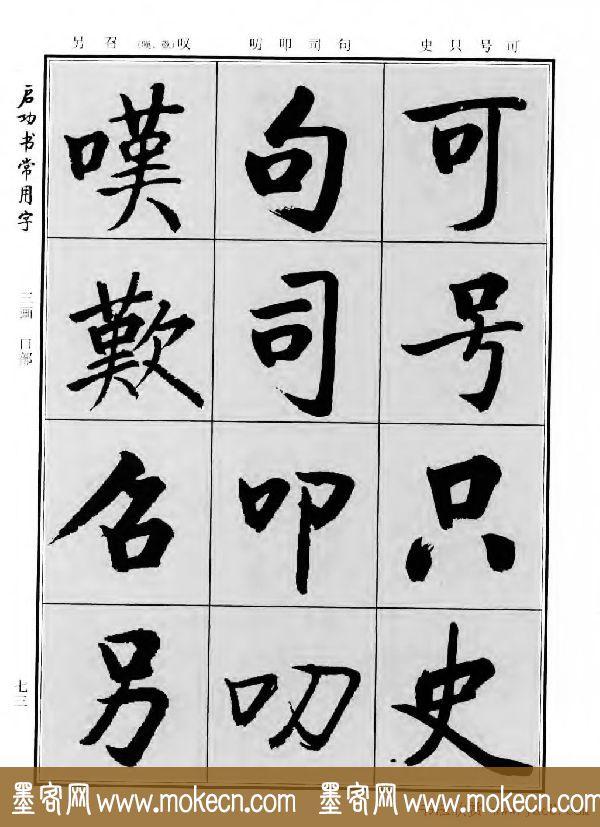 可号只史
句司叩叨
叹(嘆、歎)召另
启功书常用字
三画 口部
七三
可
号
只
史
句
司
叩
叨
嘆
歎
召
另
墨客网 www.mokecn.com 墨客网 www.mokecn.com